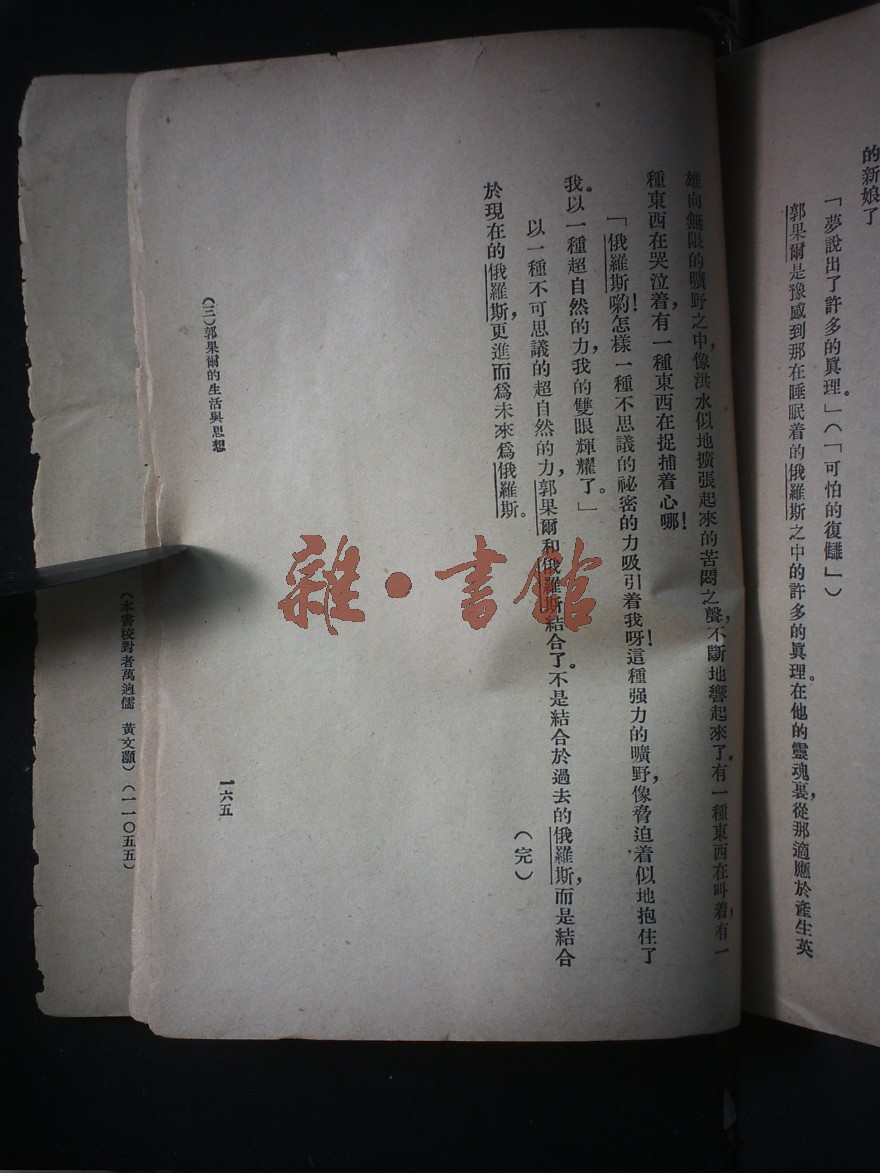 的新娘了
「夢說出了許多的眞理。」(「可怕的復讎」)
郭果爾是豫感到那在睡眠着的俄羅斯之中的許多的眞理。在他的靈魂裏,從那適應於產生英
雄向無限的曠野之中,像洪水似地擴張起來的苦悶之聲,不斷地響起來了。有一種東西在叫着,有一
種東西在哭泣着,有一種東西在捉捕着心哪!
「俄羅斯喲!怎樣一種不思議的祕密的力吸引着我呀!這種强力的曠野,像脅迫着似地抱住了
我。以一種超自然的力,我的雙眼輝耀了。」
以一種不可思議的超自然的力,郭果爾和俄羅斯結合了。不是結合於過去的俄羅斯,而是結合
於現在的俄羅斯,更進而爲未來爲俄羅斯。
(完)
(三)郭果爾的生活與思想
一六五
(本書校對者萬逈儒 黃文灝)(一一〇五五)
雜·書館